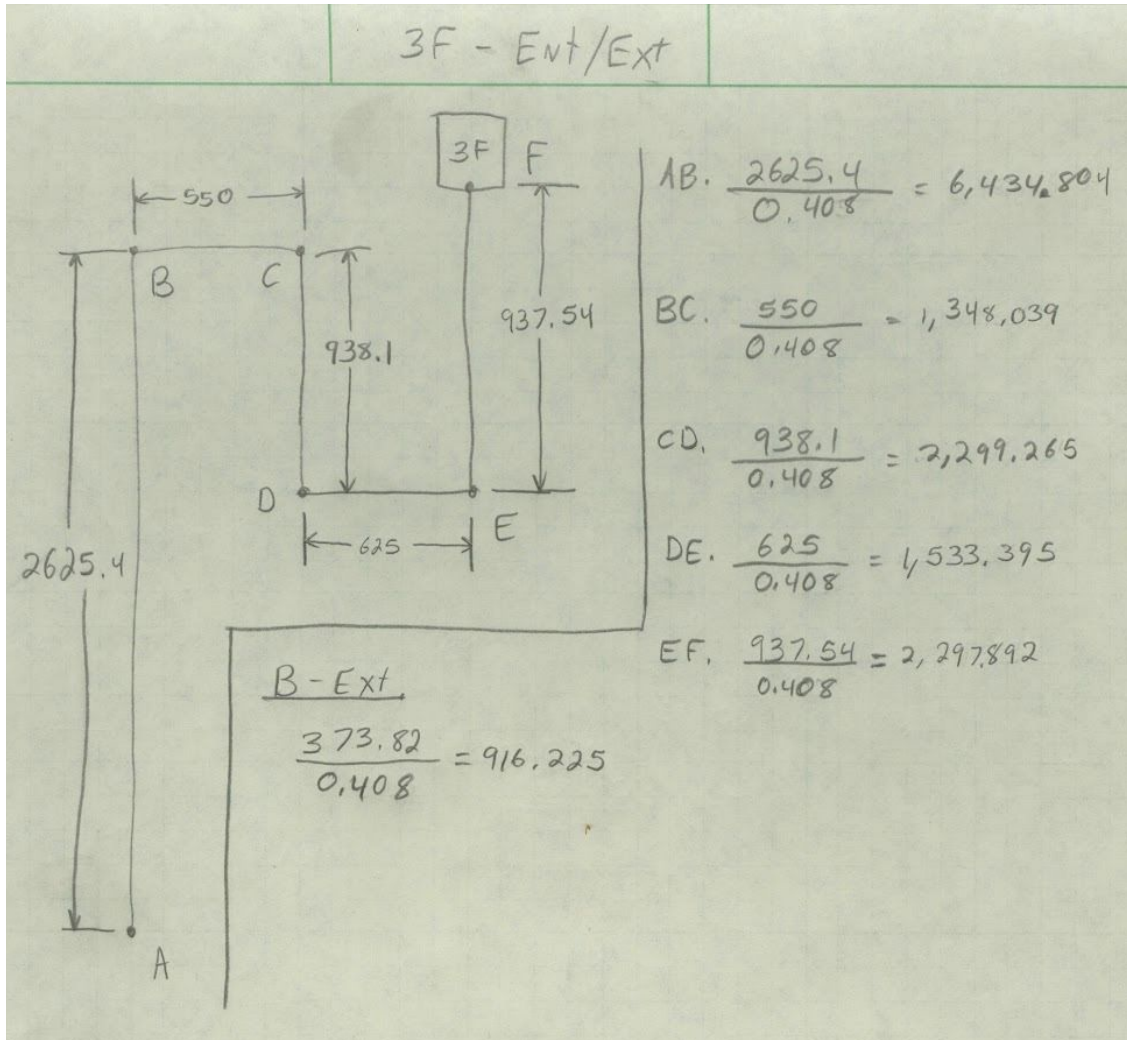 3F - Ent/Ext
3F F
550
B C
938.1
937.54
D E
625
2625.4
A
AB. 2625.4 / 0.408 = 6,434.804
BC. 550 / 0.408 = 1,348,039
CD. 938.1 / 0.408 = 2,299.265
DE. 625 / 0.408 = 1,533.395
EF. 937.54 / 0.408 = 2,297.892
B - Ext.
373.82 / 0.408 = 916.225